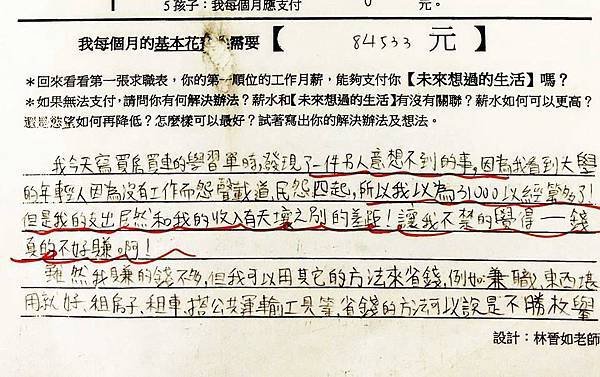 5 孩子：我每個月應支付 0 元。
我每個月的基本花 需要【 84533 元 】
＊回來看看第一張求職表，你的第一順位的工作月薪，能夠支付你【未來想過的生活】嗎？
＊如果無法支付，請問你有何解決辦法？薪水和【未來想過的生活】有沒有關聯？薪水如何可以更高？
還是慾望如何再降低？怎麼樣可以最好？試著寫出你的解決辦法及想法。
我今天寫買房買車的學習單時，發現了一件令人意想不到的事，因為我看到大學
的年輕人因為沒有工作而怨聲載道，民怨四起，所以我以為31000以經算多了！
但是我的支出居然和我的收入有天壤之別的差距！讓我不禁的覺得一錢
真的不好賺啊！
雖然我賺的錢不多，但我可以用其它的方法來省錢，例如兼職、東西堪
用就好、租房子、租車、搭公共運輸工具等，省錢的方法可以說是不勝枚舉
設計：林晉如老師